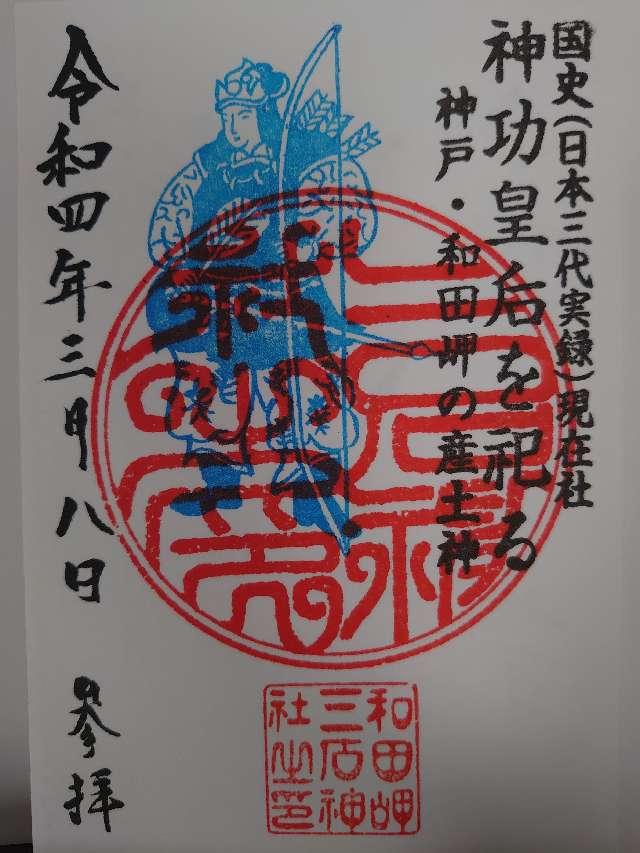 国史(日本三代実録)現在社
神功皇后を祀る
神戸・和田岬の産土神
令和四年三月八日 参拝
和田岬
三石神
社之印